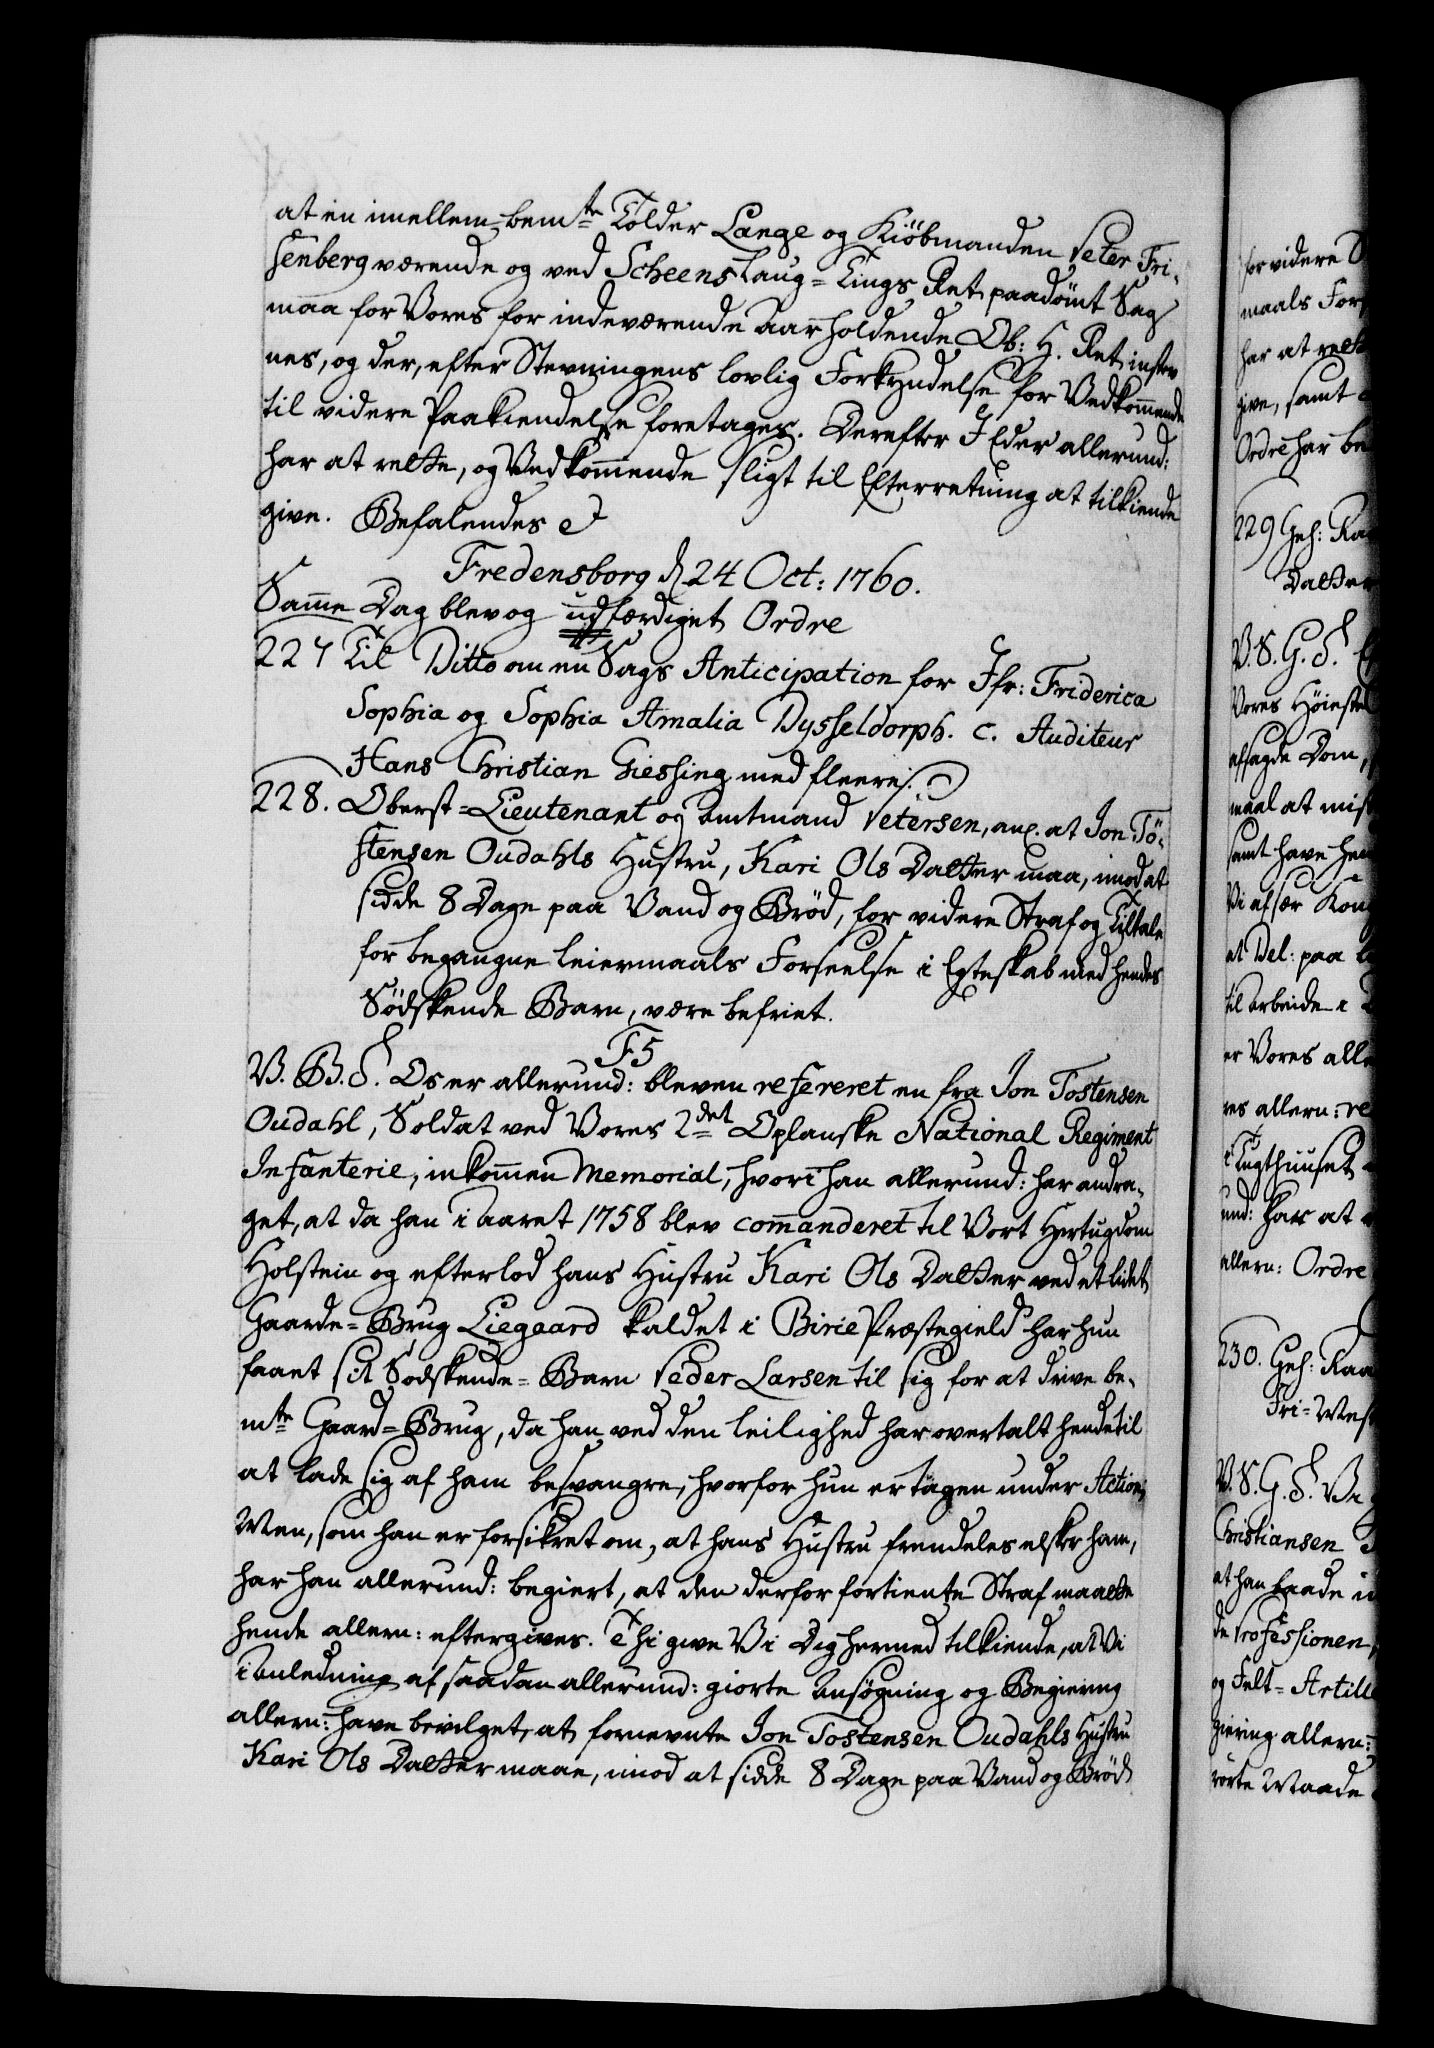 at en imellem bem:te Tolder Lange og Kiöbmanden Peter Fri-
senberg værende og ved Scheens Laug-Tings Ret paadömt Sag
maa for Vores for indeværende Aar holdende Ob: H. Ret instev
nes, og der, efter Stevningens lovlig Forkyndelse for Vedkom̄ende
til videre Paakiendelse foretages. Derefter I Eder allerund:
har at rette, og Vedkom̄ende sligt til Efterretning at tilkiende
give. Befalendes
Fredensborg d 24 Oct: 1760.
Sam̄e Dag blev og udfærdiget Ordre
227 Til Ditto om en Sags Anticipation for Jfr: Friderica
Sophia og Sophia Amalia Dysseldorph. c. Auditeur
Hans Christian Giessing med fleere.
228. Oberst-Lieutenant og Amtmand Petersen, anl. at Jon To-
stensen Oudahls Hustru, Kari Ols Datter maa, imod at
sidde 8 Dage paa Vand og Brød, for videre Straf og Tiltale
for begangne Leiermaals Forseelse i Egteskab med hendes
Södskende Barn, være befriet.
F5
V. B. G. Os er allerund: bleven refereret en fra Jon Tostensen
Oudahl, Soldat ved Vores 2det Oplanske National Regiment
Infanterie, inkom̄en Memorial, hvori han allerund: har andra-
get, at da han i Aaret 1758 blev com̄anderet til Vort Hertugdom
Holstein og efterlod hans Hustru Kari Ols Datter ved et lidet
Gaarde-Brug Liegaard kaldet i Birie Præstegield har hun
faaet sit Sodskende-Barn Peder Larsen til sig for at drive be-
mte Gaard-Brug, da han ved den Leilighed har overtalt hende til
at lade sig af ham besvangre, hvorfor hun er tagen under Action;
Men, som han er forsikret om, at hans Hustru fremdeles elsker ham,
har han allerund: begiert, at den derfor fortiente Straf maatte
hende allern: eftergives. Thi give Vi Dig hermed tilkiende, at Vi
i Anledning af saadan allerund: giorte Ansøgning og Begiering
allern: have bevilget, at fornevnte Jon Tostensen Oudahls Hustru
Kari Ols Datter maae, imod at sidde 8 Dage paa Vand og Bröd
for videre
maals
har at rette
give, samt
Ordre har be
229 Geh:
Datter
V. S. G.
Vores Höieste
afsagde Dom,
maal at mis
samt have
Vi af sær
at Del: paa
til Arbeide i
er Vores alle
res allern: re
i Tugthuuset
und: har at
allern: Ordre
230. Geh: Raa
Fri-Mes
V. S. G. Vi
Christiansen
at han baade i
de Professionen,
og Felt-Artill
giering allern:
rörte Maade